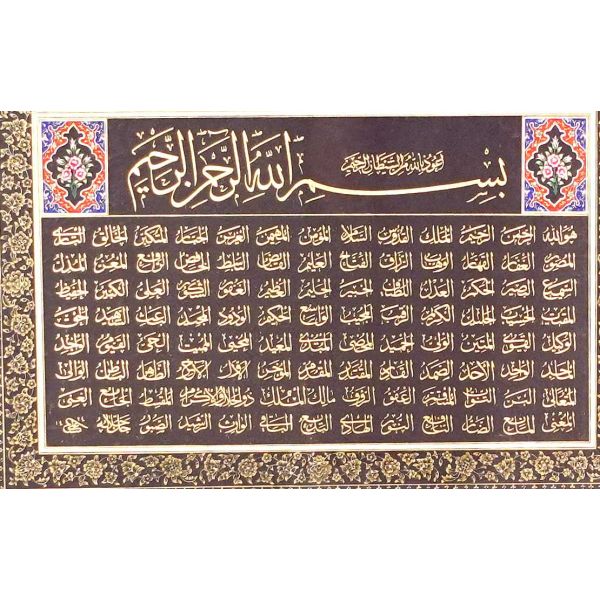 اعوذ بالله من الشیطان الرجیم
بسم الله الرحمن الرحیم
هوالله الرحمن الرحیم الملک القدوس السلام المؤمن المهیمن العزیز الجبار المتکبر الخالق الباری
المصور الغفار القهار الوهاب الرزاق الفتاح العلیم القابض الباسط الخافض الرافع المعز المذل
السمیع البصیر الحکم العدل اللطیف الخبیر الحلیم العظیم الغفور الشکور العلی الکبیر الحفیظ
المقیت الحسیب الجلیل الکریم الرقیب المجیب الواسع الحکیم الودود المجید الباعث الشهید الحق
الوکیل القوی المتین الولی الحمید المحصی المبدئ المعید المحیی الممیت الحی القیوم الواجد
الماجد الواحد الاحد الصمد القادر المقتدر المقدم المؤخر الاول الاخر الظاهر الباطن الوالی
المتعالی البر التواب المنتقم العفو الرؤف مالک الملک ذوالجلال والاکرام المقسط الجامع الغنی
المغنی المانع الضار النافع النور الهادی البدیع الباقی الوارث الرشید الصبور جل جلاله